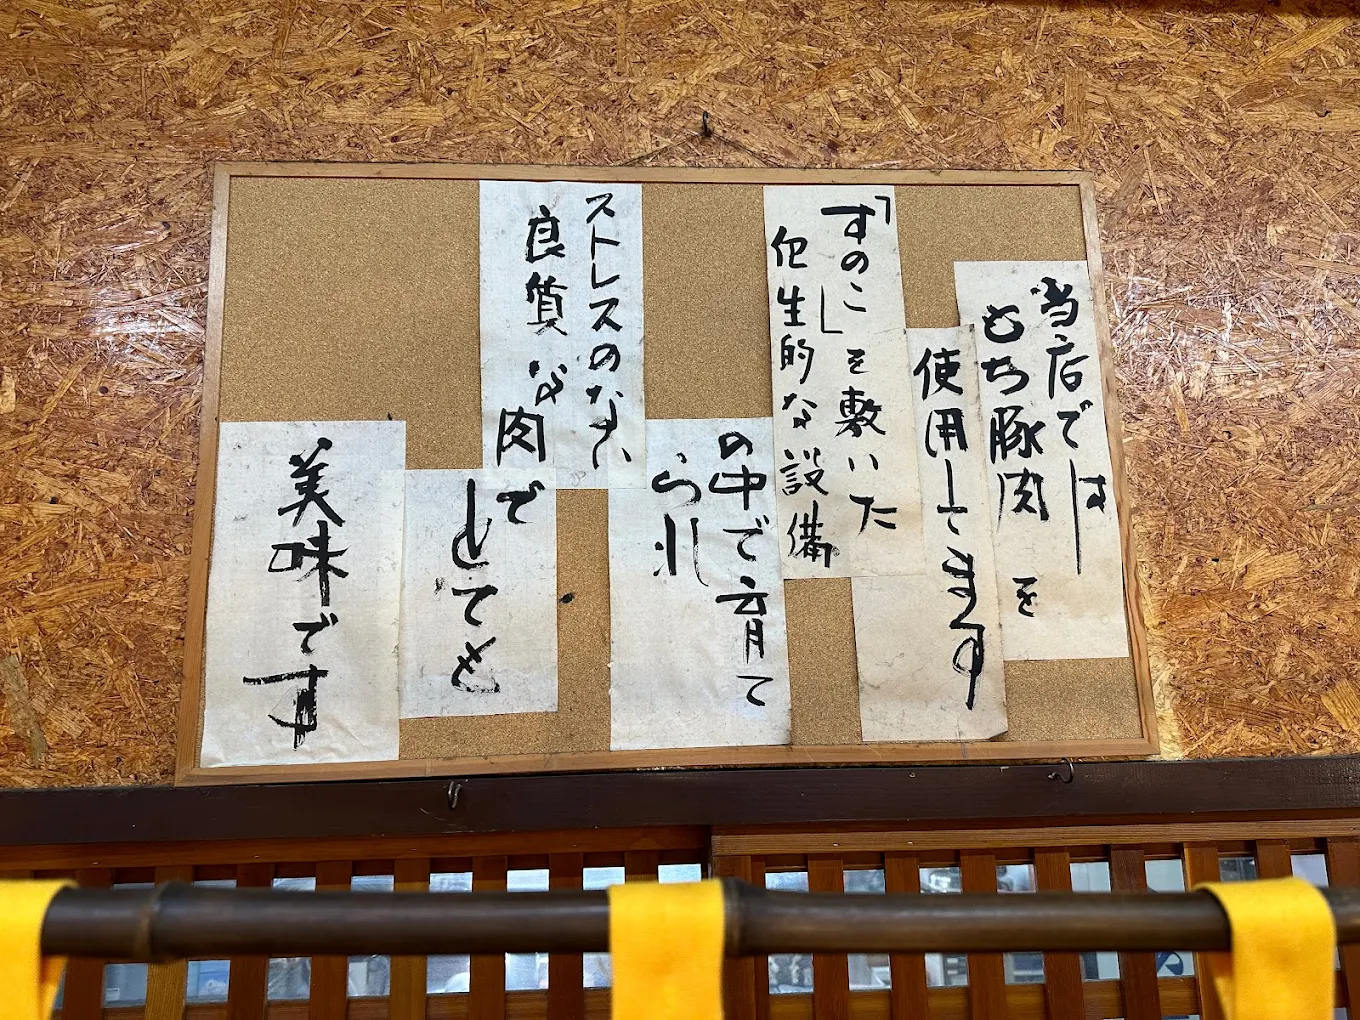 当店では
もち豚肉を
使用してます
「すのこ」を敷いた
衛生的な設備
の中で育て
られ
ストレスのない
良質な肉で
とても
美味です